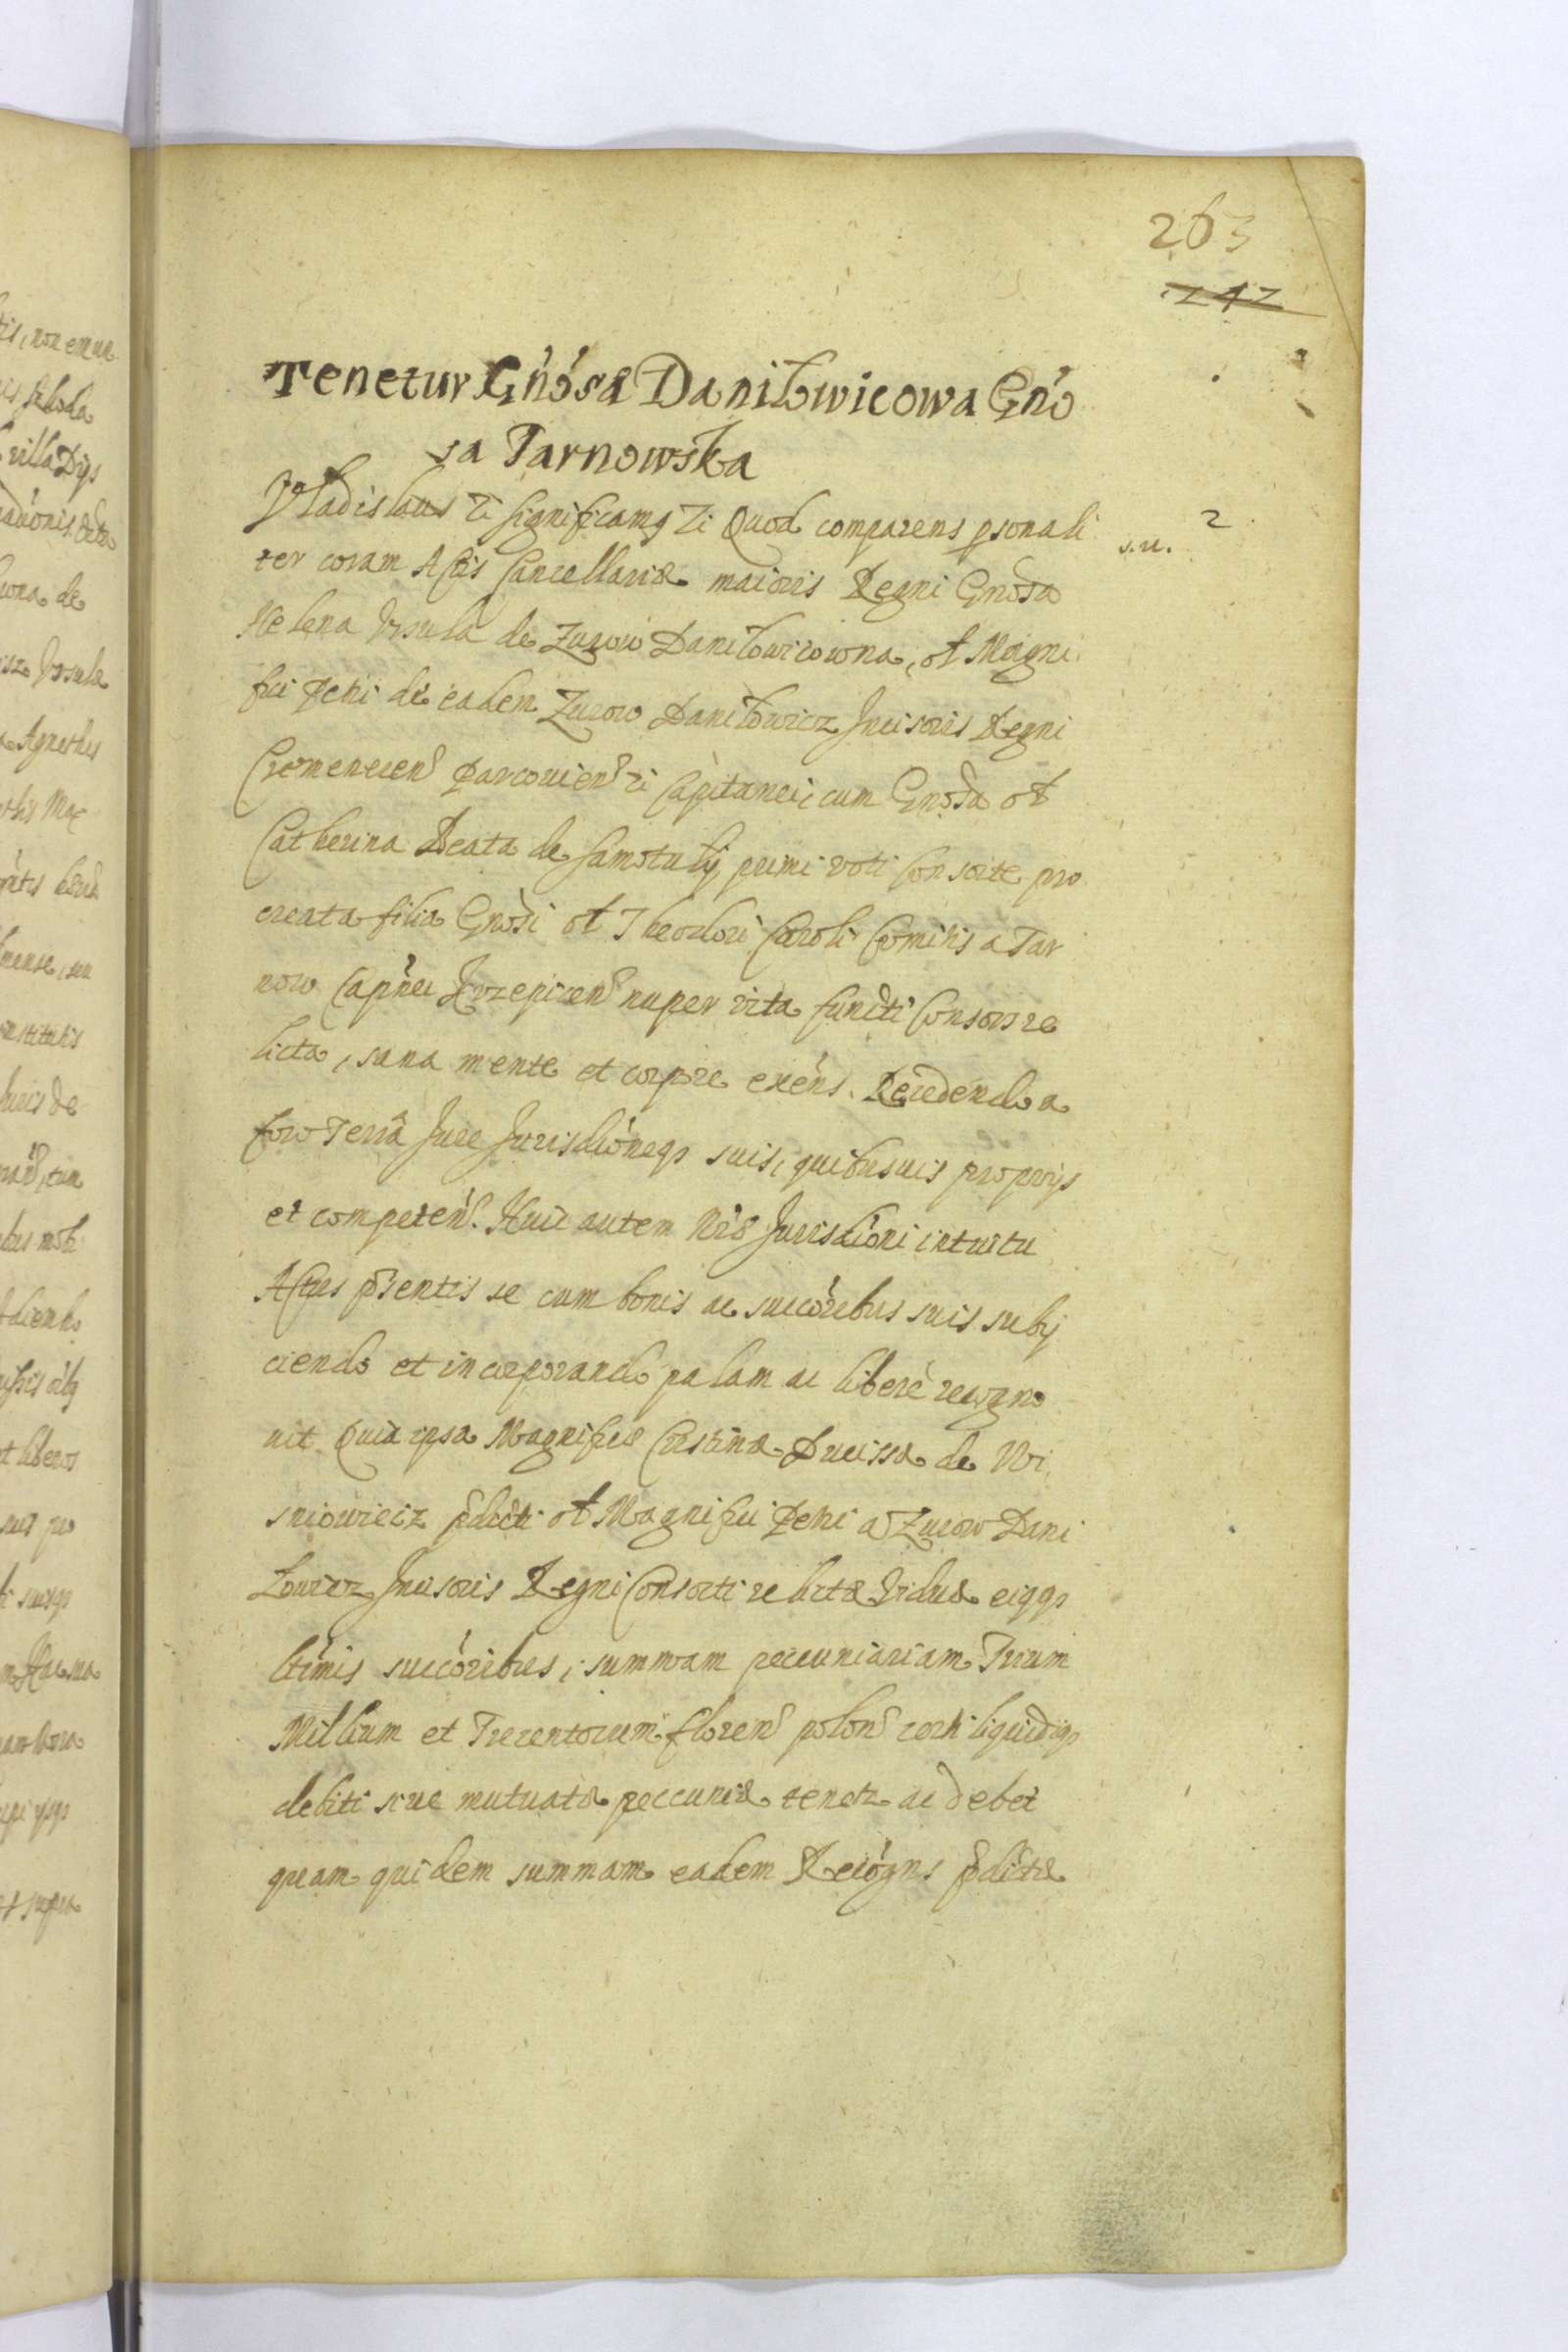 263
242
Tenetur Gńósæ Daniłowicowa Gńó
sa Tarnowska
Vladislaus Ꝛc significamꝯ Ꝛc Quod comparens ꝑsonali
s.u. 2
ter coram Actis Cancellariæ maioris Regni Gnosa
Helena Vrsula de Zurow Daniłowicowna, ol Magni
fici Petri de eadem Zurow Daniłowicz Incisoris Regni
Cremenecen̄ Parcovien̄ Ꝛc Capitanei, cum Gnosa ol
Catherina Beata de Samotuly primi voti Consorte pro
creata filia Gnosi ol Theodori Caroli Comitis a Tar
now Capnei Krzepicen̄ nuper vita functi Consors re
licta, sana mente et corpore exens. Recedendo a
foro Terrâ Jure Jurisdiónéqꝫ suis, quibusuis proprijs
et competen̄. Huic autem Nræ Jurisdióni intuitu
Actus pr̄sentis se cum bonis ac succóribus suis subij
ciendo et incorporando palam ac liberè recogno
uit Quia ipsa Magnificæ Cristinæ Ducissæ de Wi
sniowiecz pdicti ol Magnifici Petri a Zurow Dani
łowicz Incisoris Regni Consorti relictæ Viduæ eiqqꝫ
ltimis succóribus, summam pecuniariam Trium
Millium et Trecentorum floren̄ polon̄ certi liquidiqꝫ
debiti siue mutuatæ peccuniæ tenetꝛ ac debet
quam quidem summam eadem Recógns pdictæ